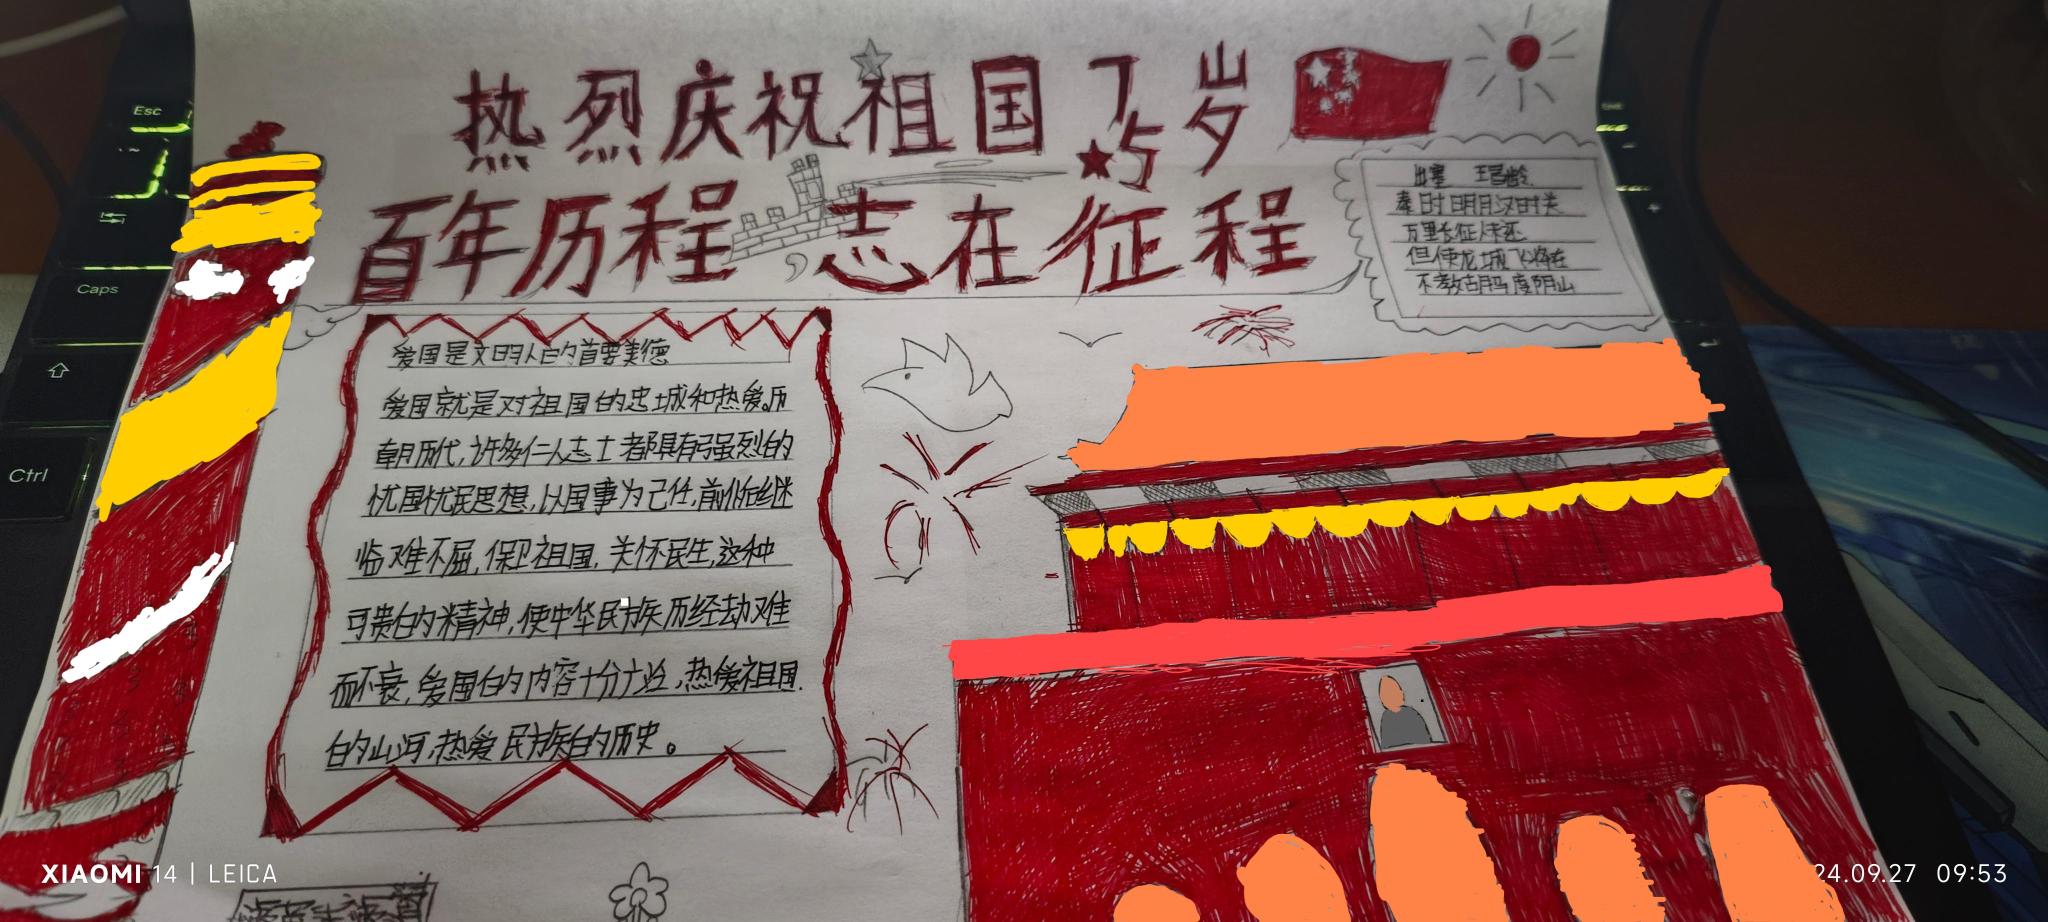 热烈庆祝祖国75岁
百年历程,志在征程
出塞 王昌龄
秦时明月汉时关
万里长征人未还
但使龙城飞将在
不教胡马度阴山
爱国是文明人的首要美德
爱国就是对祖国的忠城和热爱。历
朝历代,许多仁人志士都具有强烈的
忧国忧民思想,以国事为己任,前仆后继
临难不屈,保卫祖国,关怀民生,这种
可贵的精神,使中华民族历经劫难
而不衰,爱国的内容十分广泛,热爱祖国
的山河,热爱民族的历史。
Esc
Caps
Ctrl
XIAOMI 14 | LEICA
24.09.27 09:53